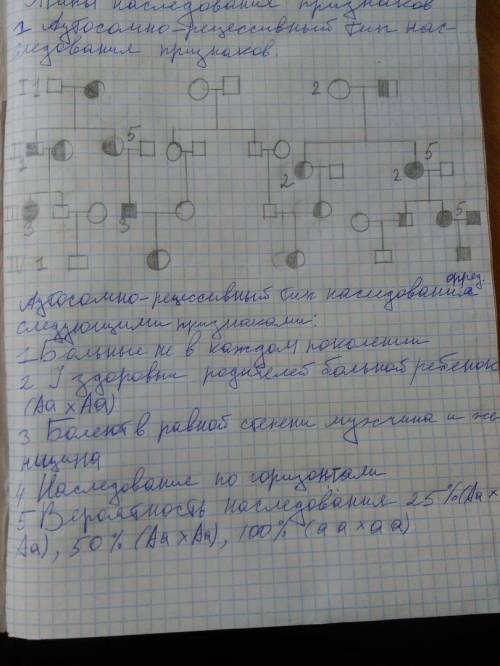 Типы наследования признаков
1 Аутосомно-рецессивный тип нас-
следования признаков.
I 1 2
5
II 2 2 2 5
III 3 3 5
IV 1
Аутосомно-рецессивный тип наследования опред.
следующими признаками:
1 Больные не в каждом поколении
2 У здоровых родителей больной ребенок
(Аа х Аа)
3 Болеют в равной степени мужчина и же
нщина
4 Наследование по горизонтали
5 Вероятность наследования 25%(Аа х
Аа), 50% (Аа х Аа), 100% (аа х аа)